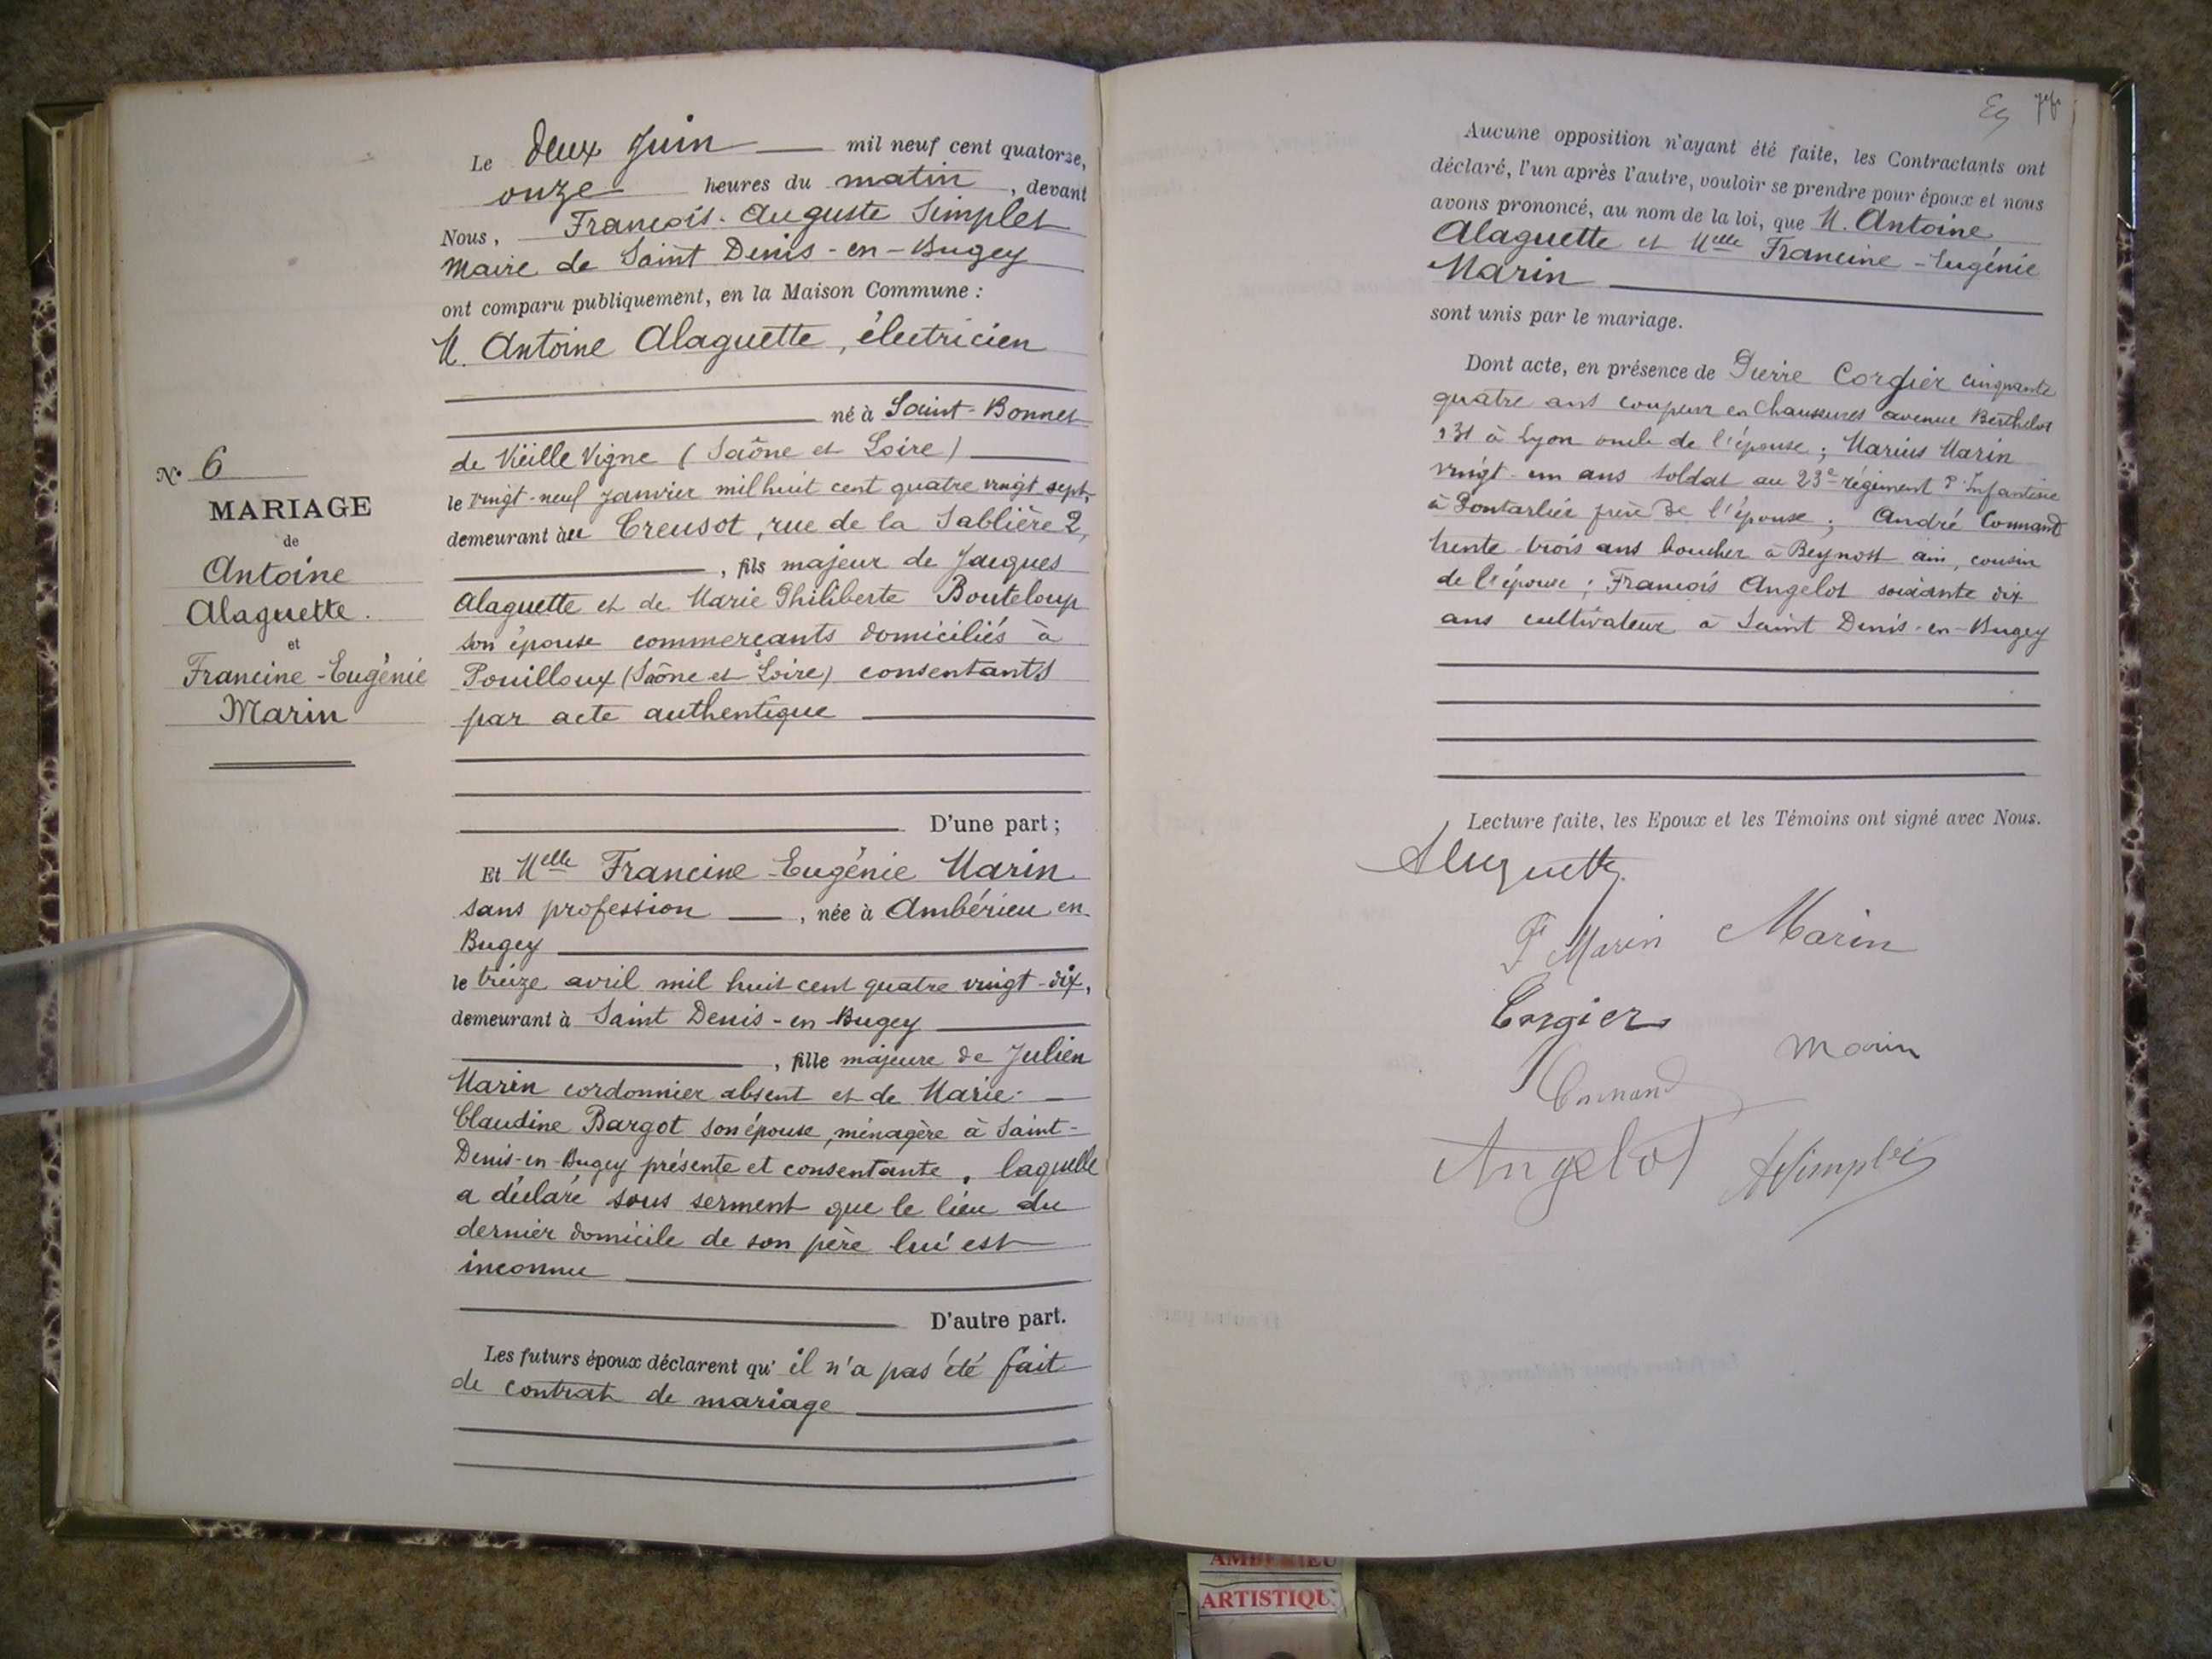 N° 6
MARIAGE
de
Antoine
Alaguette.
et
Francine-Eugénie
Marin
Le deux Juin mil neuf cent quatorze,
onze heures du matin, devant
Nous, François-Auguste Simplet
Maire de Saint Denis-en-Bugey
ont comparu publiquement, en la Maison Commune :
M. Antoine Alaguette, électricien
né à Saint-Bonnet
de Vieille Vigne (Saône et Loire)
le vingt-neuf Janvier mil huit cent quatre vingt sept,
demeurant au Creusot, rue de la Sablière 2,
, fils majeur de Jacques
Alaguette et de Marie Philiberte Bouteloup
son épouse commerçants domiciliés à
Pouilloux (Saône et Loire) consentants
par acte authentique
D'une part ;
Et Melle Francine-Eugénie Marin
sans profession, née à Ambérieu en
Bugey
le treize avril mil huit cent quatre vingt-dix,
demeurant à Saint Denis-en-Bugey
, fille majeure de Julien
Marin cordonnier absent et de Marie-
Claudine Bargot son épouse, ménagère à Saint-
Denis-en-Bugey présente et consentante, laquelle
a déclaré sous serment que le lieu du
dernier domicile de son père lui est
inconnu
D'autre part.
Les futurs époux déclarent qu'il n'a pas été fait
de contrat de mariage
Aucune opposition n'ayant été faite, les Contractants ont
déclaré, l'un après l'autre, vouloir se prendre pour époux et nous
avons prononcé, au nom de la loi, que M. Antoine
Alaguette et Melle Francine-Eugénie
Marin
sont unis par le mariage.
Dont acte, en présence de Pierre Corgier cinquante
quatre ans coupeur en chaussures avenue Berthelot
131 à Lyon oncle de l'épouse ; Marius Marin
vingt-un ans soldat au 23e régiment d'Infanterie
à Pontarlier frère de l'épouse ; André Connand
trente trois ans boucher à Beynost ain, cousin
de l'épouse ; François Angelot soixante dix
ans cultivateur à Saint Denis-en-Bugey
Lecture faite, les Epoux et les Témoins ont signé avec Nous.
Alaguette
F Marin Marin
Corgier
Marin
Connand
Angelot ASimplet
AMBERIEU
ARTISTIQU